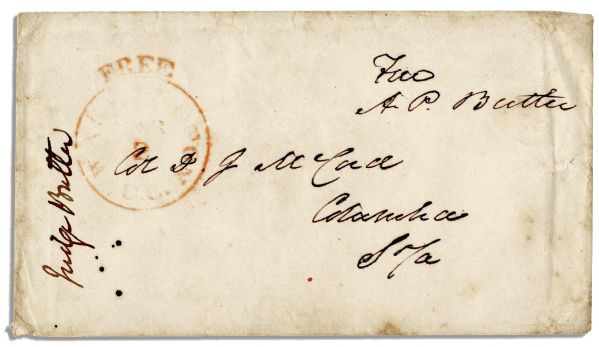 FREE
Free
A. P. Butler
Col D. J McCord
Columbia
S Ca
Judge Butler